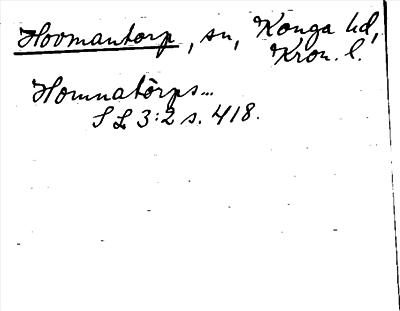 Hovmantorp, sn, Konga hd,
Kron. l.
Homnatörps...
S L 3:2 s. 418.